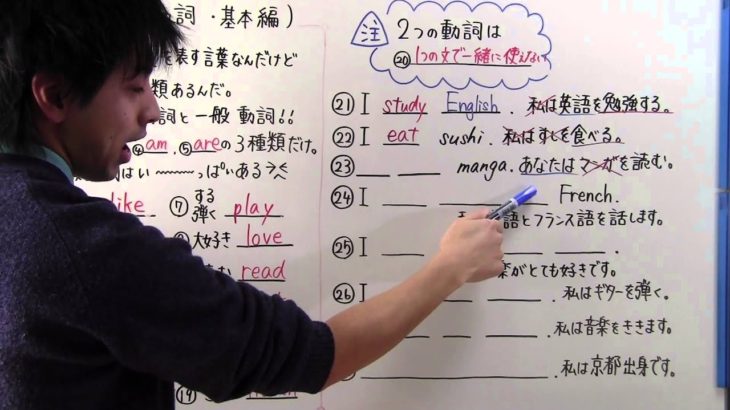 詞・基本編)
を表す言葉なんだけど
類あるんだ。
詞と一般動詞!!
④am.⑤areの3種類だけ。
はい〜〜〜っぱいあるぞ
like ⑦ する 弾く play
大好き love
read
⑭
注 2つの動詞は
⑳ 1つの文で一緒に使えない
㉑ I study English. 私は英語を勉強する。
㉒ I eat sushi. 私はすしを食べる。
㉓ manga. あなたはマンガを読む。
㉔ I French.
語とフランス語を話します。
㉕ I .
がとても好きです。
㉖ I . 私はギターを弾く。
. 私は音楽をききます。
. 私は京都出身です。